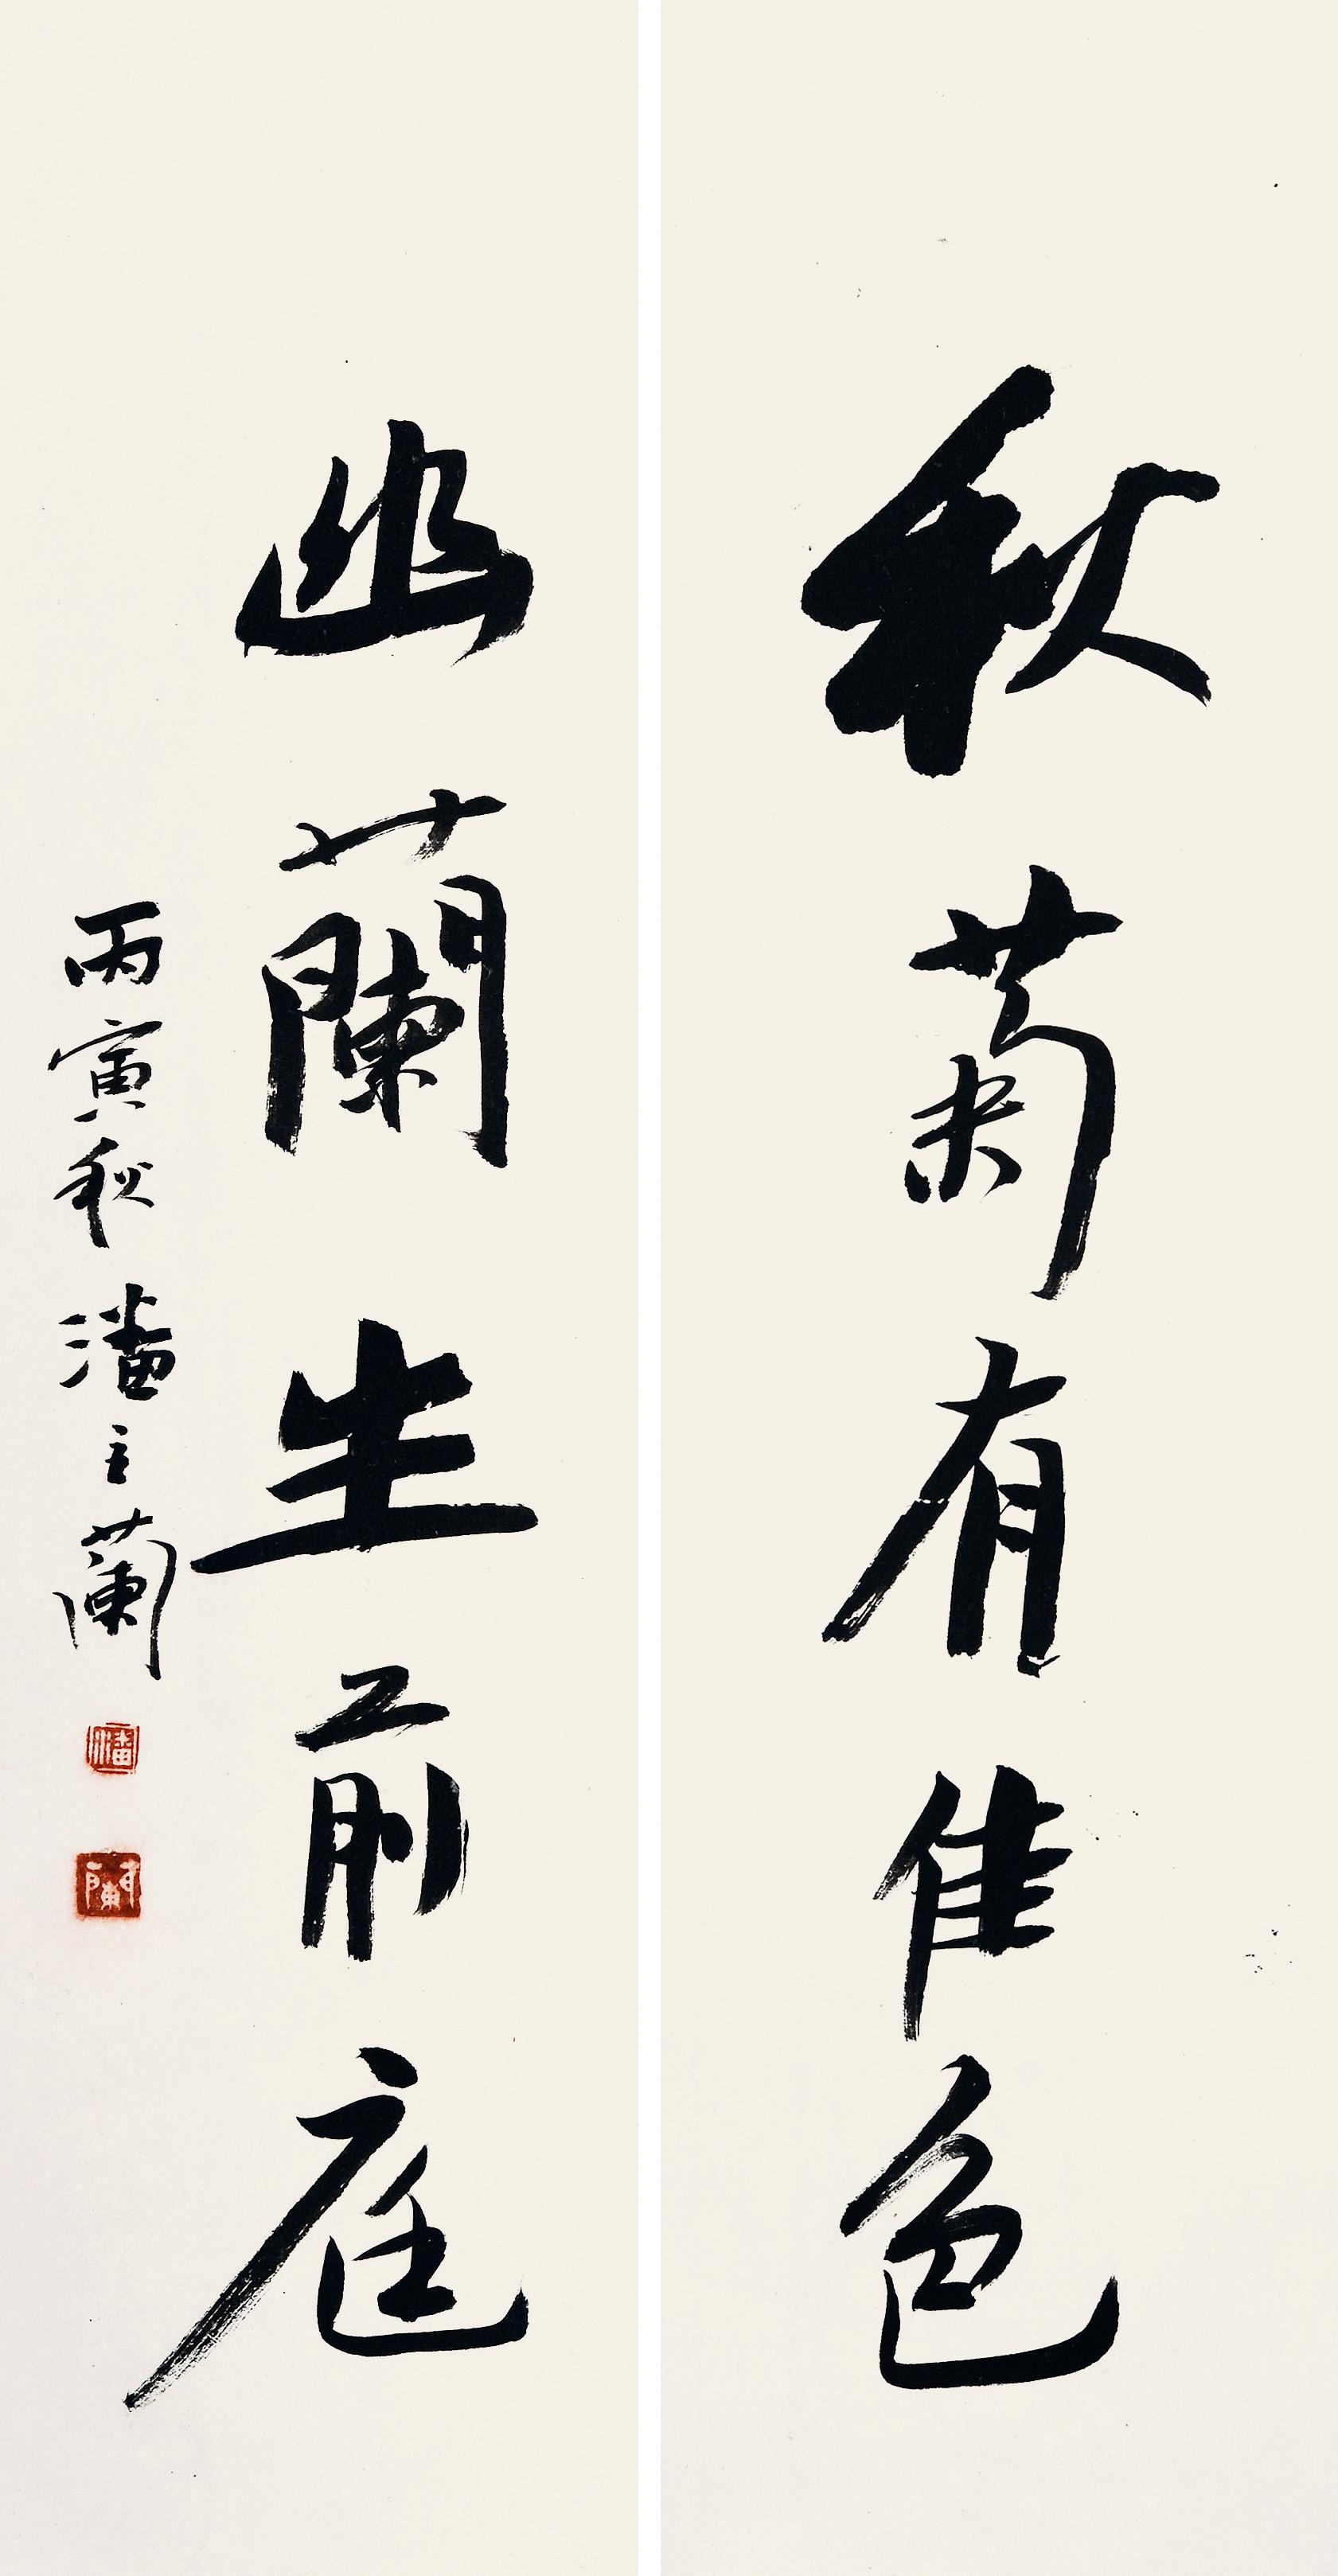 秋菊有佳色
幽蘭生前庭
丙寅秋潘主蘭
潘
蘭